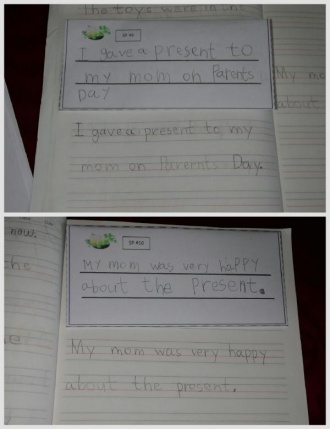 The toys were in the
SP #6
I gave a present to
my mom on Parents
Day
My mo
about
I gave a present to my
mom on Parents Day.
nouse
he
SP #10
My mom was very happy
about the Present.
My mom was very happy
about the present.